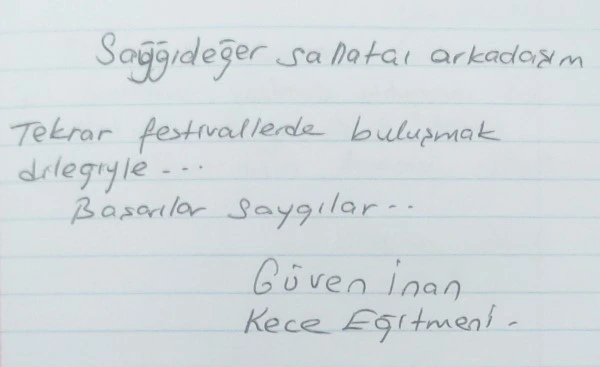 Sağğıdeğer sanatcı arkadaşım
Tekrar festivallerde buluşmak
dılegıyle ---
Basarılar saygılar --
Güven İnan
Kece Eğıtmeni -